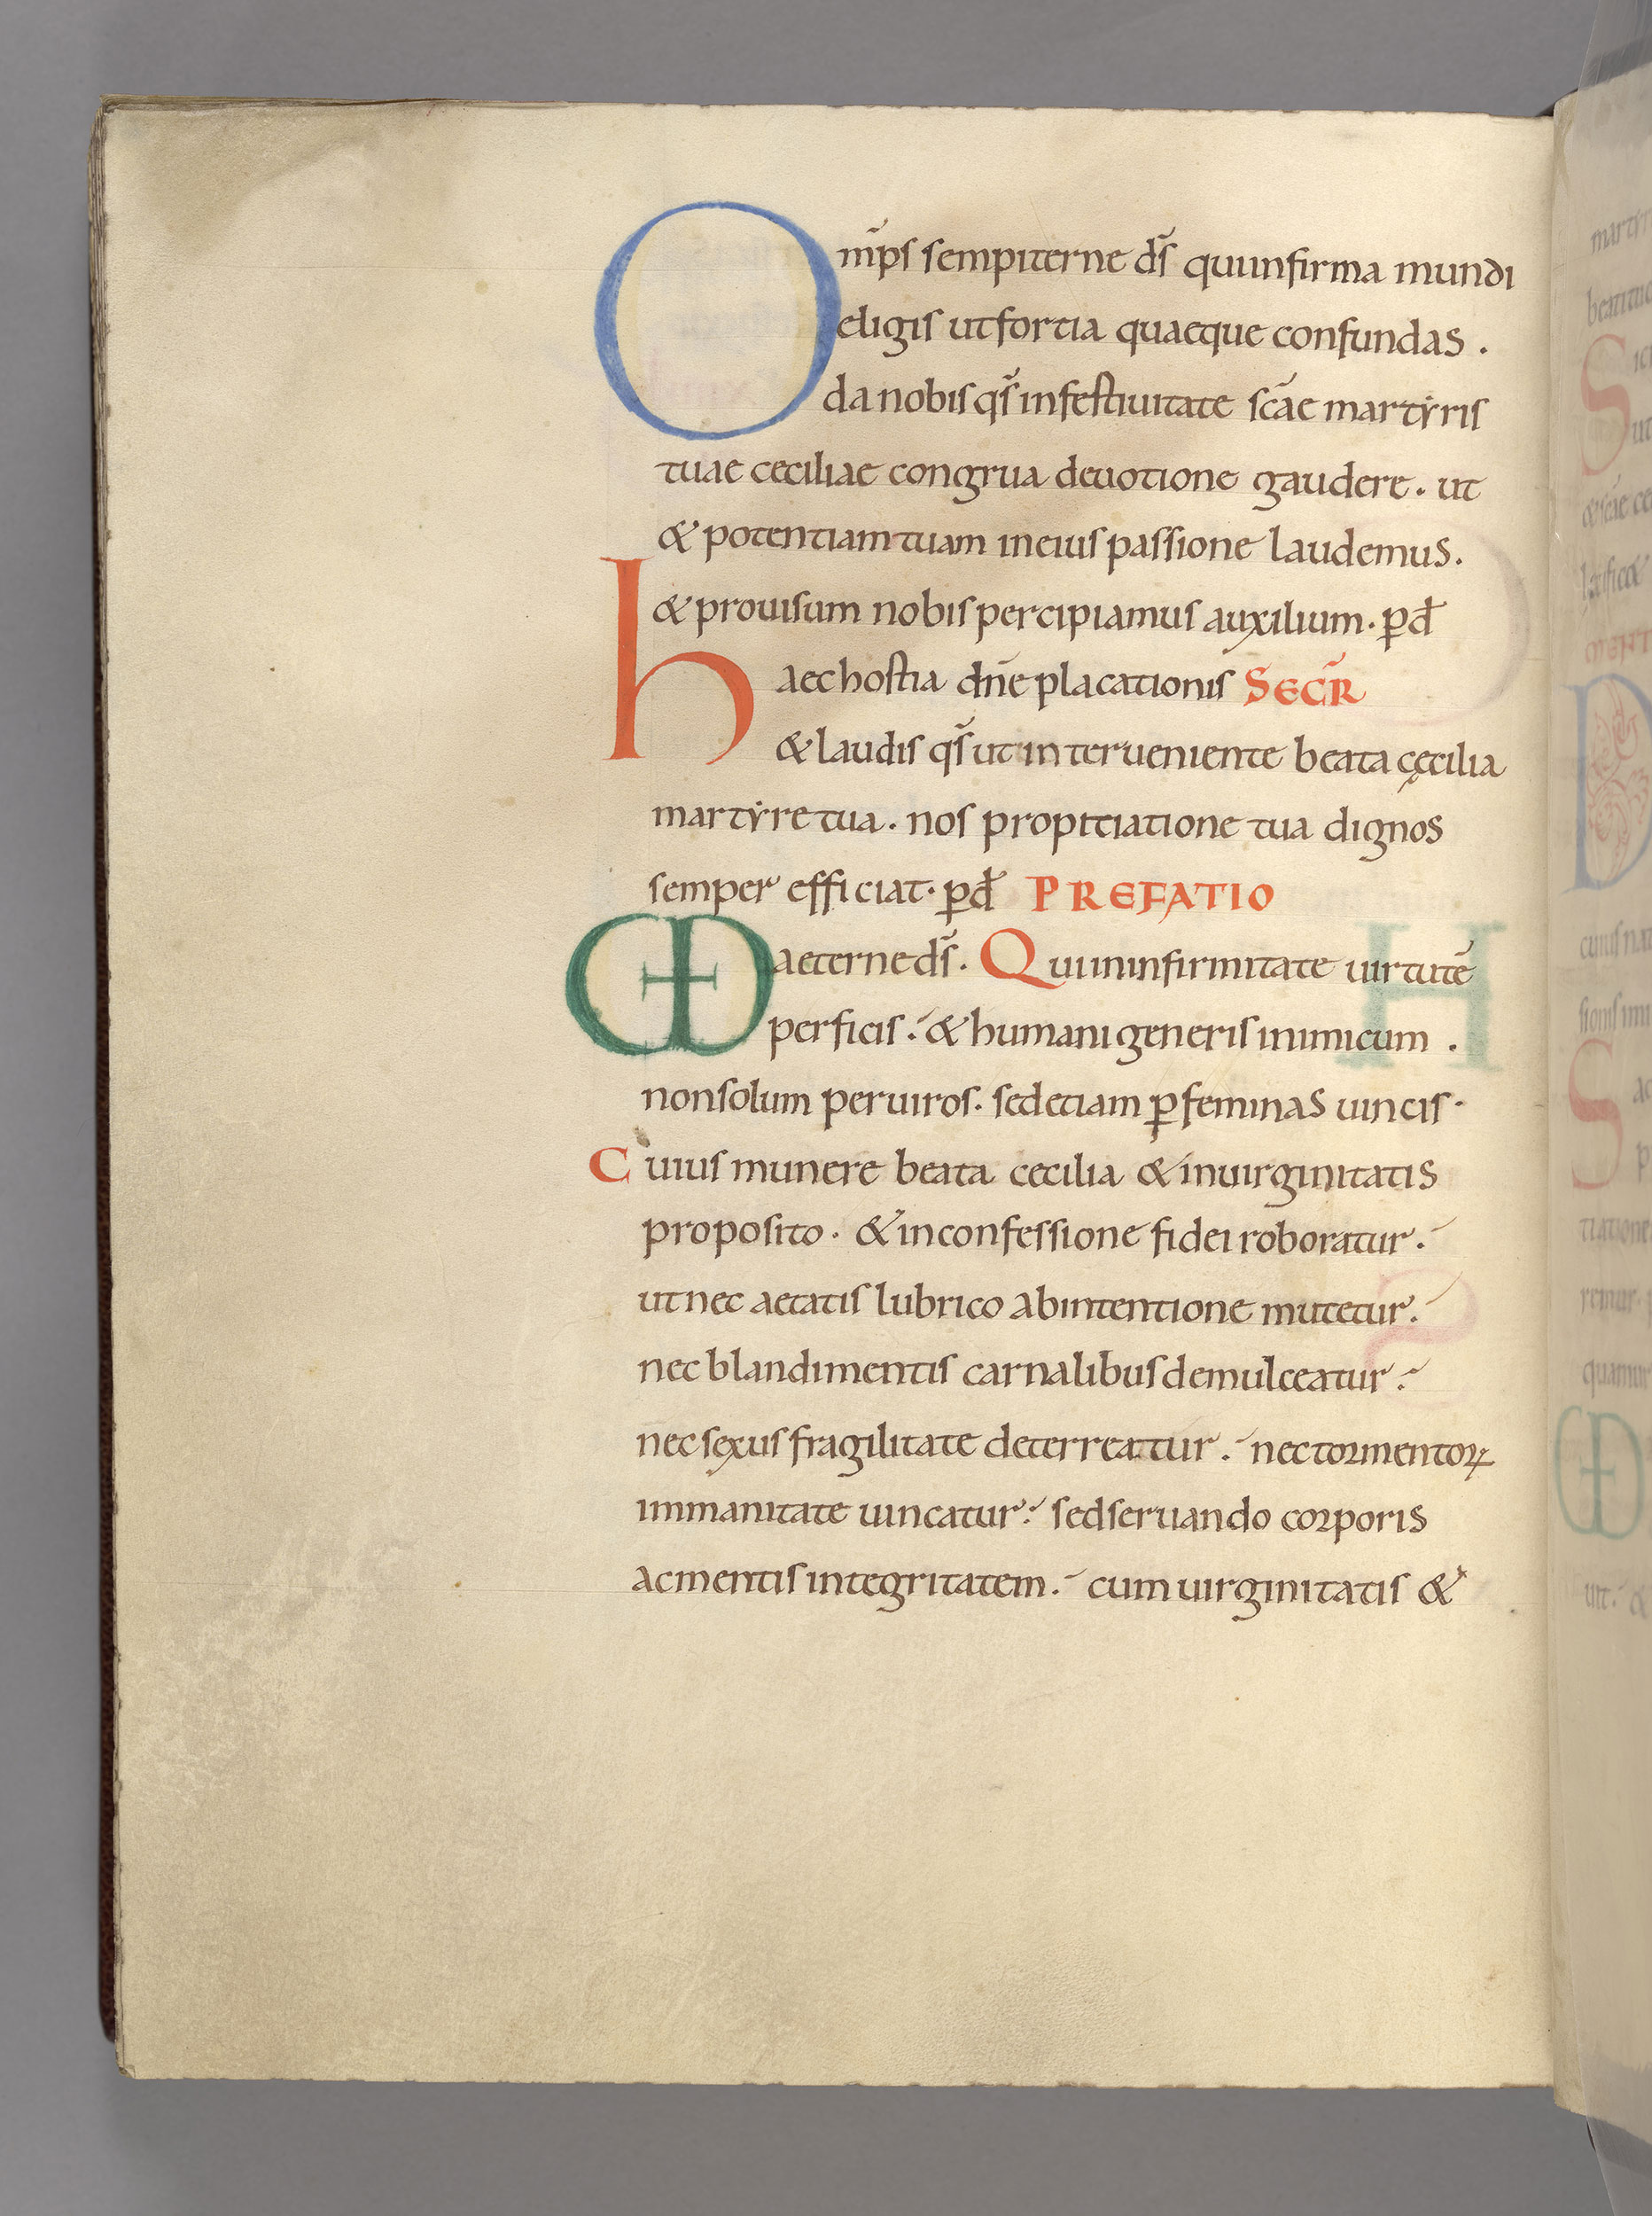 Om̄ps sempiterne ds̄ qui infirma mundi
eligis ut fortia quaeque confundas .
da nobis qs̄ in festiuitate sc̄ae martẏris
tuae ceciliae congrua deuotione gaudere . ut
& potentiam tuam in eius passione laudemus .
& prouisum nobis percipiamus auxilium · ꝑ d̄
haec hostia dn̄e placationis SECR̄
& laudis qs̄ ut interueniente beata cęcilia
martẏre tua . nos propitiatione tua dignos
semper efficiat · ꝑ d̄ PREFATIO
VD aeterne ds̄ . Qui in infirmitate uirtutē
perficis : & humani generis inimicum .
non solum per uiros . sed etiam ꝑ feminas uincis ·
Cuius munere beata cecilia & in uirginitatis
proposito · & in confessione fidei roboratur .
ut nec aetatis lubrico ab intentione mutetur .
nec blandimentis carnalibus demulceatur :
nec sexus fragilitate deterreatur . nec tormentoꝝ
immanitate uincatur : sed seruando corporis
ac mentis integritatem . cum uirginitatis &